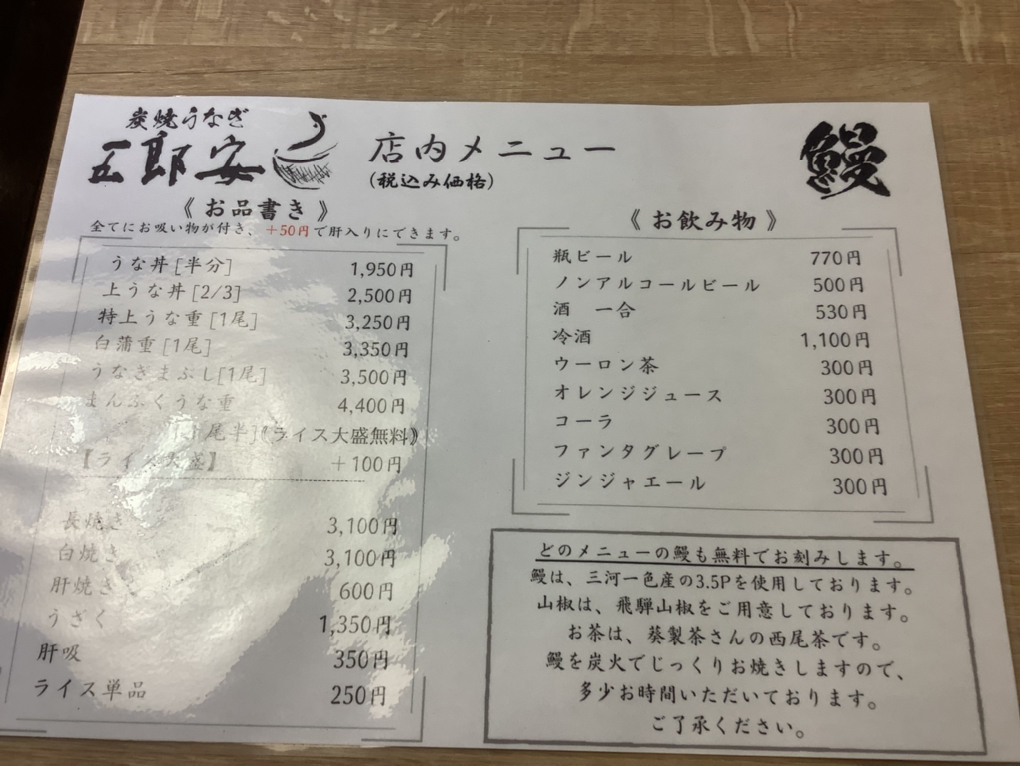 炭焼うなぎ
五郎安
店内メニュー
(税込み価格)
鰻
《お品書き》
全てにお吸い物が付き、+50円で肝入りにできます。
うな丼[半分] 1,950円
上うな丼[2/3] 2,500円
特上うな重[1尾] 3,250円
白蒲重[1尾] 3,350円
うなぎまぶし[1尾] 3,500円
まんぷくうな重 4,400円
尾半]《ライス大盛無料》
【ライス大盛】 +100円
長焼き 3,100円
白焼き 3,100円
肝焼き 600円
うざく 1,350円
肝吸 350円
ライス単品 250円
《お飲み物》
瓶ビール 770円
ノンアルコールビール 500円
酒 一合 530円
冷酒 1,100円
ウーロン茶 300円
オレンジジュース 300円
コーラ 300円
ファンタグレープ 300円
ジンジャエール 300円
どのメニューの鰻も無料でお刻みします。
鰻は、三河一色産の3.5Pを使用しております。
山椒は、飛騨山椒をご用意しております。
お茶は、葵製茶さんの西尾茶です。
鰻を炭火でじっくりお焼きしますので、
多少お時間いただいております。
ご了承ください。